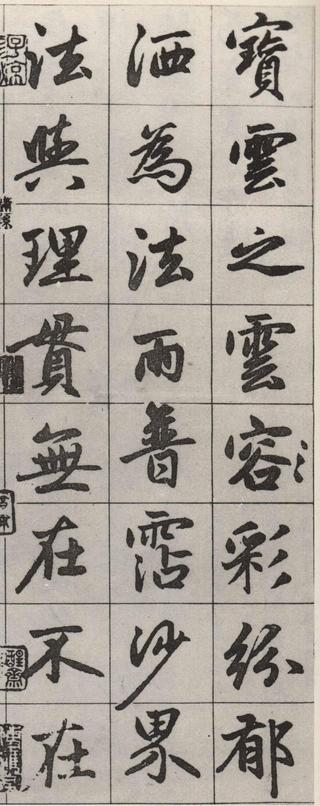 寶雲之雲容〻彩紛郁
洒為法雨普霑沙界
法與理貫無在不在